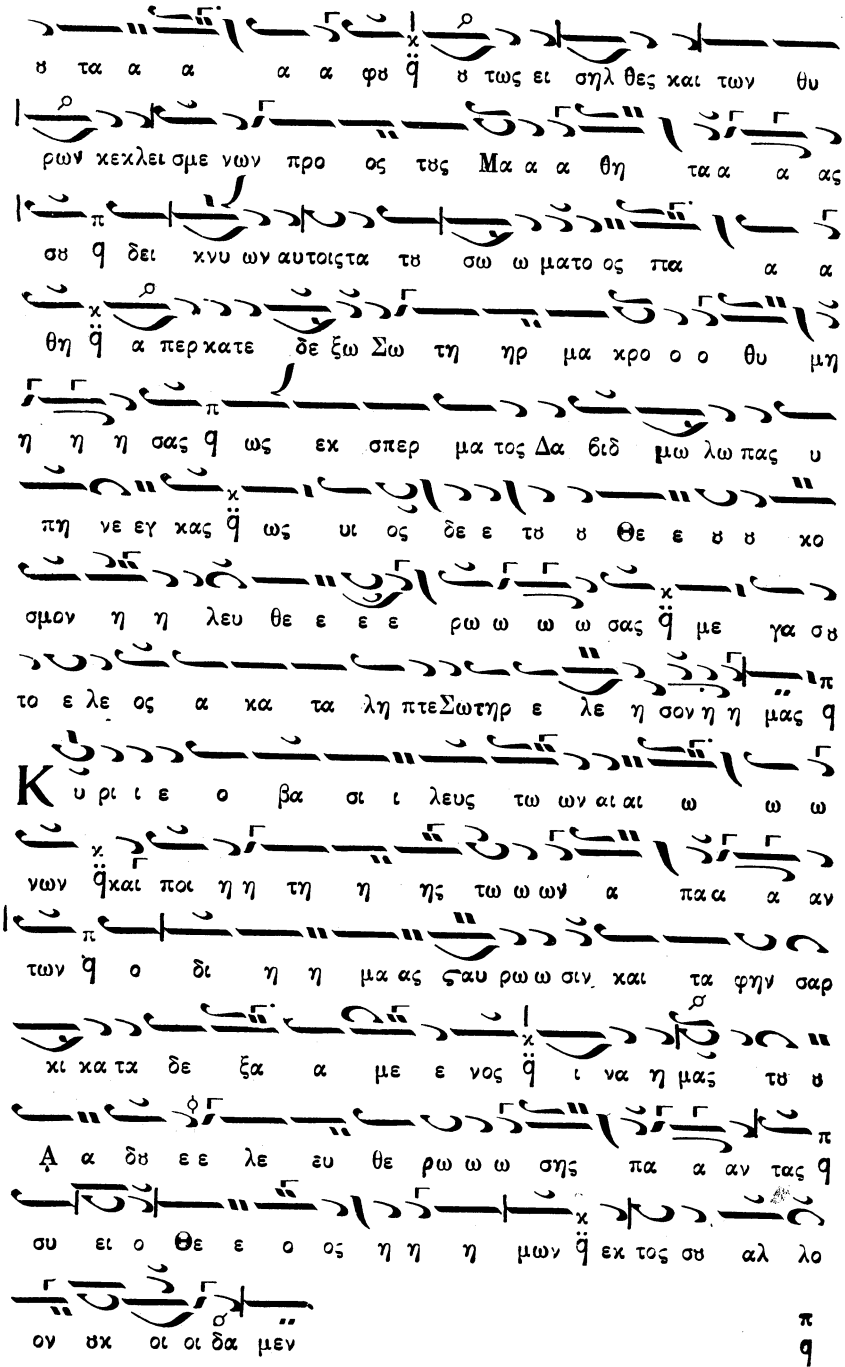 ȣ τα α α α α φȣ ȣ τως ει σηλ θες και των θυ
ρων κεκλει σμε νων προ ος τȣς Μα α α θη τα α α ας
σȣ δει κνυ ων αυτοιςτα τȣ σω ω ματο ος πα α α
θη α περ κατε δε ξω Σω τη ηρ μα κρο ο ο θυ μη
η η η σας ως εκ σπερ μα τος Δα βιδ μω λω πας υ
πη νε εγ κας ως υι ος δε ε τȣ ȣ Θε ε ȣ ȣ κο
σμον η η λευ θε ε ε ε ρω ω ω ω σας με γα σȣ
το ε λε ος α κα τα λη πτεΣωτηρ ε λε η σον η η μας
Κ υ ρι ι ε ο βα σι ι λευς τω ων αι αι ω ω ω
νων και ποι η η τη η ης τω ω ων α πα α α αν
των ο δι η η μα ας ϛαυ ρω ω σιν και τα φην σαρ
κι κα τα δε ξα α με ε νος ι να η μας τȣ ȣ
Α α δȣ ε ε λε ευ θε ρω ω ω σης πα α αν τας
συ ει ο Θε ε ο ος η η η μων εκ τος σȣ αλ λο
ον ȣκ οι οι δα μεν